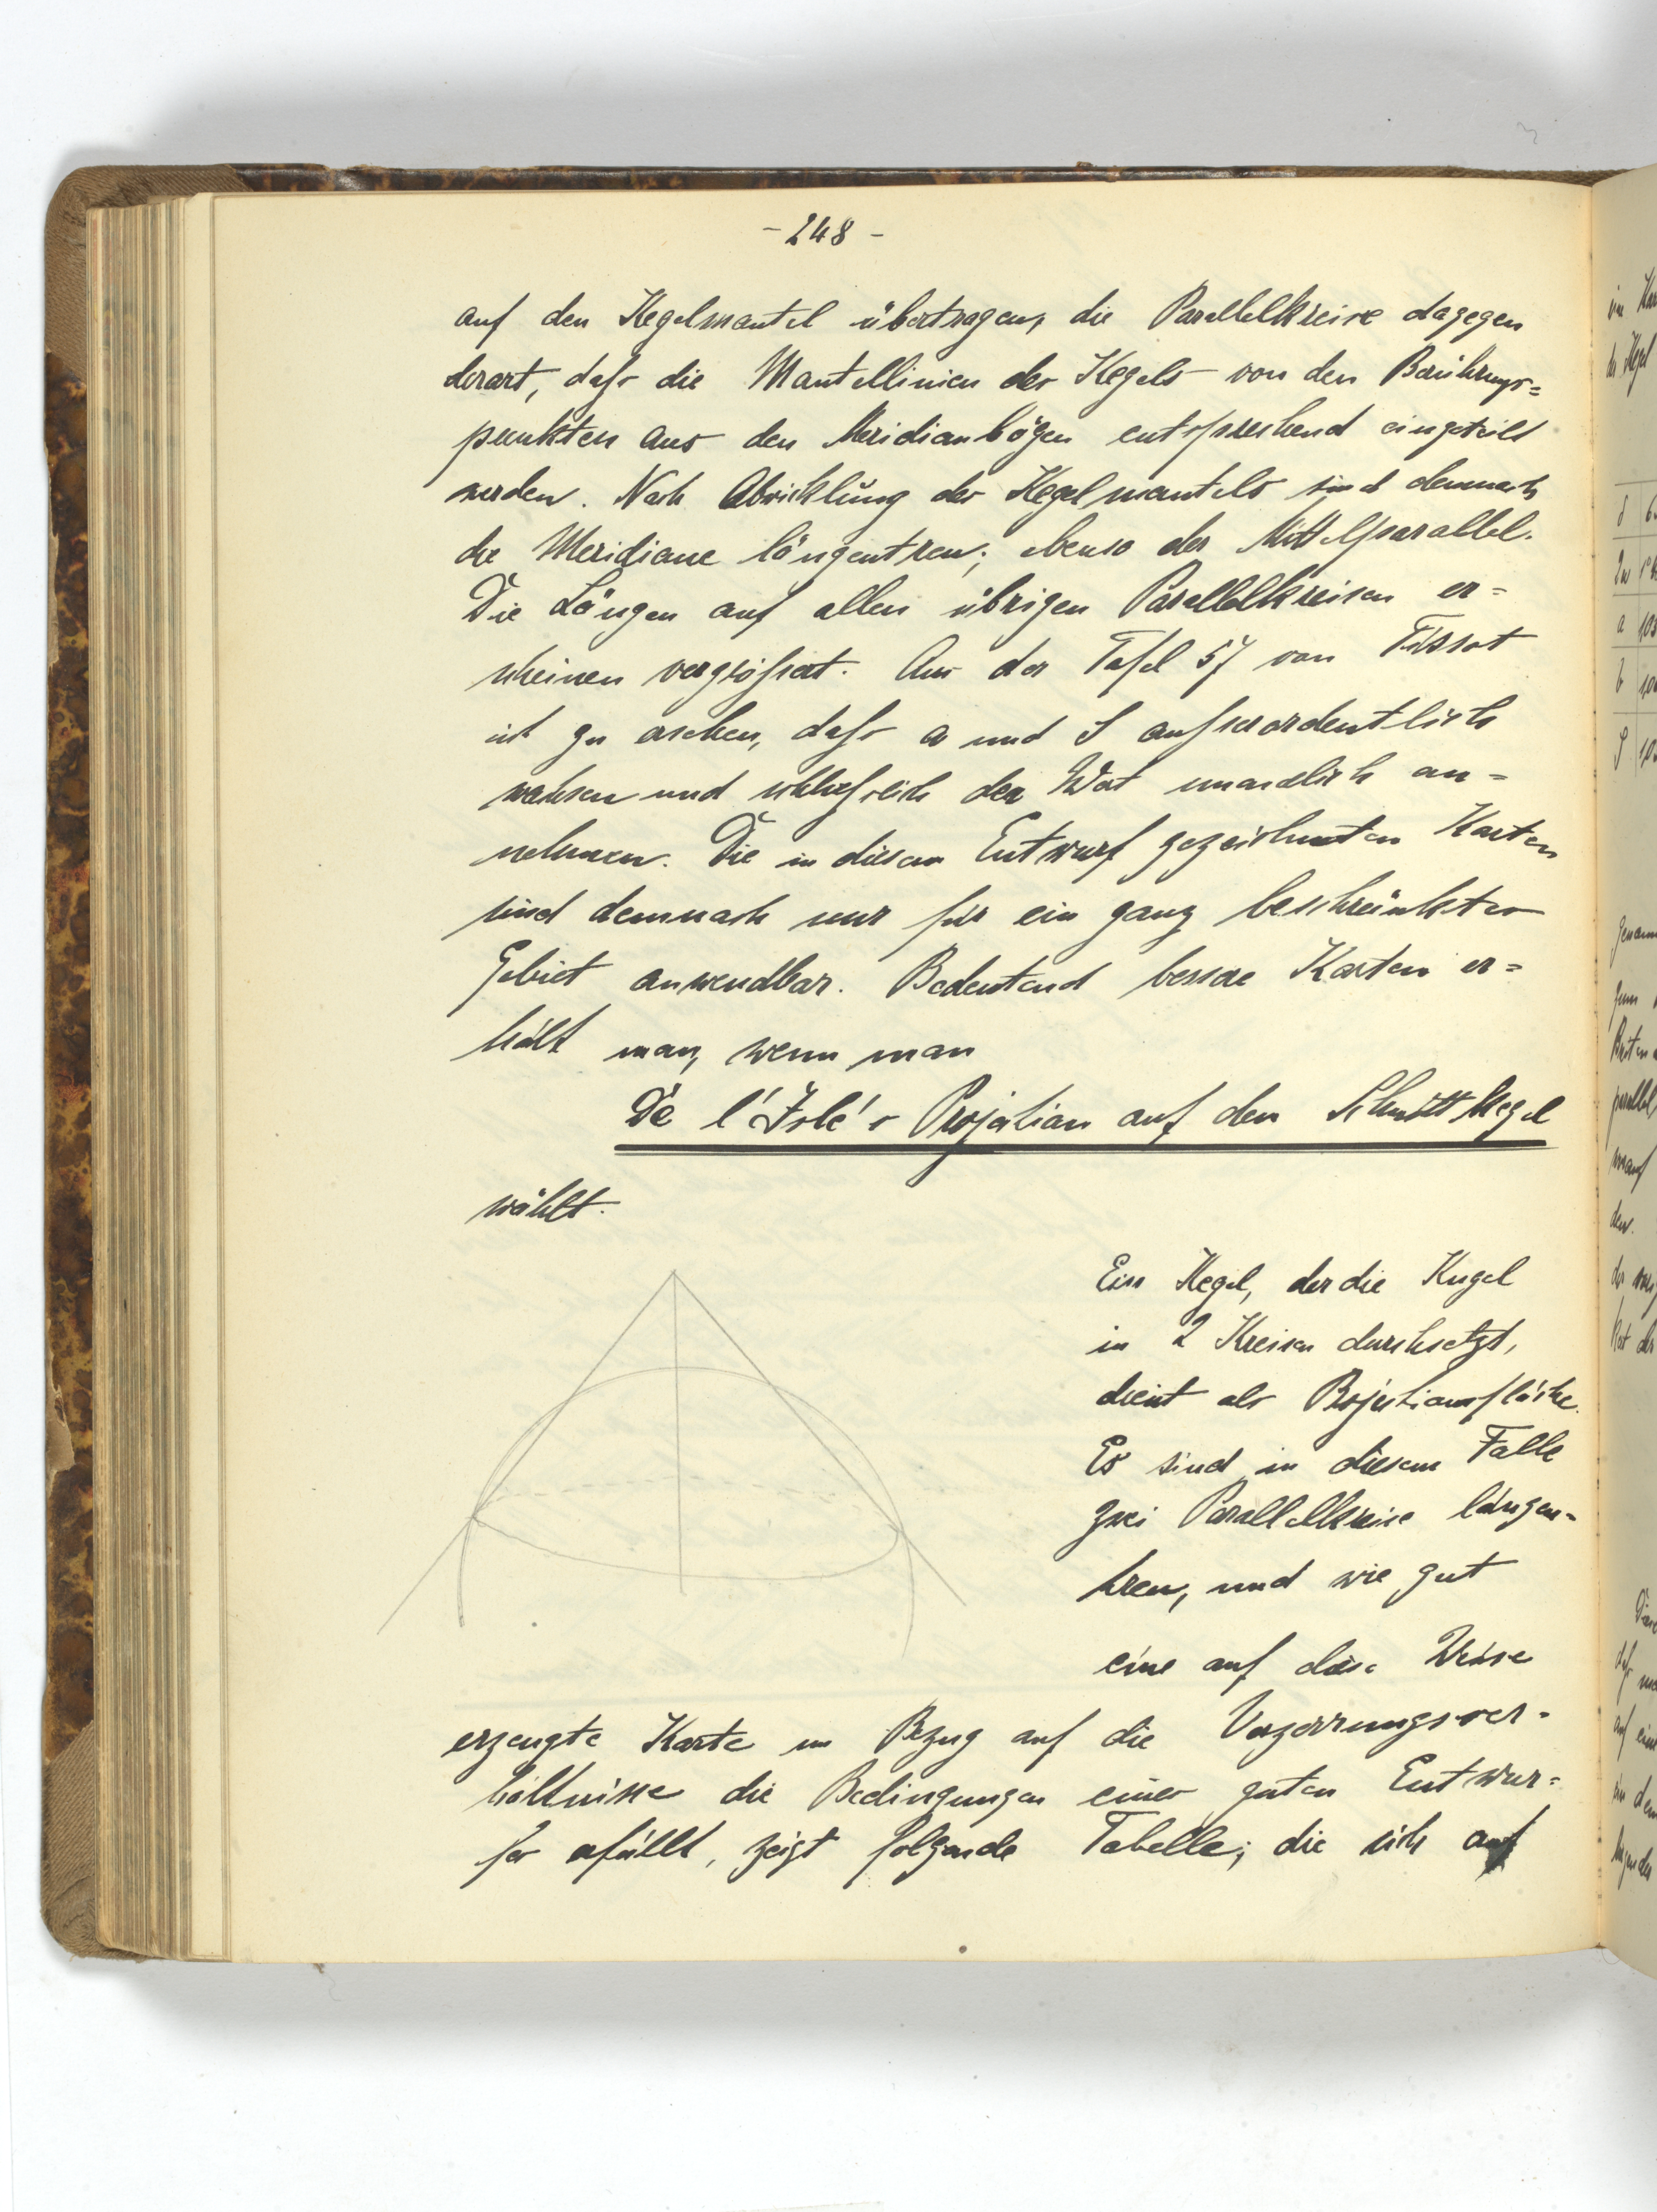 - 248 -
auf den Kegelmantel übertragen, die Parallelkreise dagegen
derart, daß die Mantellinien des Kegels von den Berührungs=
punkten aus den Meridianbögen entsprechend eingeteilt
werden. Nach Abwicklung des Kegelmantels sind demnach
die Meridiane längentreu; ebenso der Mittelparallel.
Die Längen auf allen übrigen Parallelkreisen er=
scheinen vergrößert. Aus der Tafel 57 von Tissot
ist zu ersehen, daß a und S außerordentlich
wachsen und schließlich den Wert unendlich an=
nehmen. Die in diesem Entwurf gezeichneten Karten
sind demnach nur für ein ganz beschränktes
Gebiet anwendbar. Bedeutend bessere Karten er=
hält man, wenn man
De l'Isle's Projektion auf den Schnittkegel
wählt.
Ein Kegel, der die Kugel
in 2 Kreisen durchsetzt,
dient als Projektionsfläche.
Es sind in diesem Falle
zwei Parallelkreise längen=
treu, und wie gut
eine auf diese Weise
erzeugte Karte in Bezug auf die Verzerrungsver=
hältnisse die Bedingungen eines guten Entwur=
fes erfüllt, zeigt folgende Tabelle; die sich auf